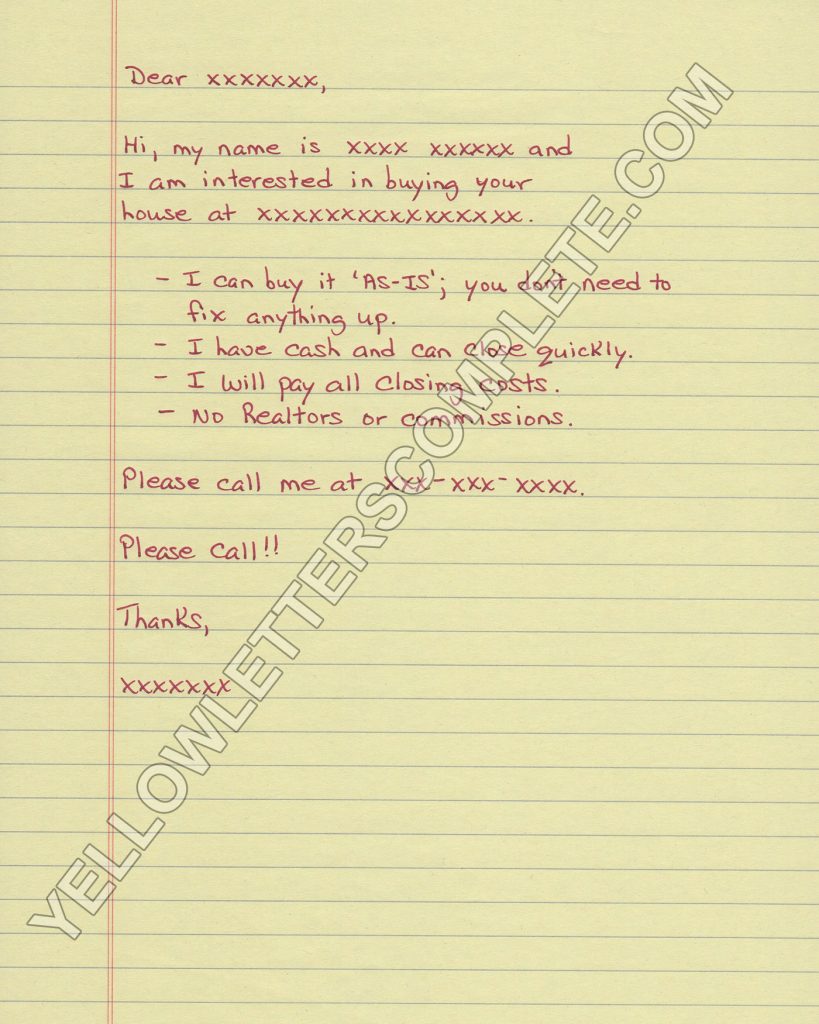 Dear xxxxxxx,
Hi, my name is xxxx xxxxxx and
I am interested in buying your
house at xxxxxxxxxxxxxxxxx.
- I can buy it 'AS-IS'; you don't need to
fix anything up.
- I have cash and can close quickly.
- I will pay all closing costs.
- No Realtors or commissions.
Please call me at xxx-xxx-xxxx.
Please call!!
Thanks,
xxxxxxx
YELLOWLETTERSCOMPLETE.COM